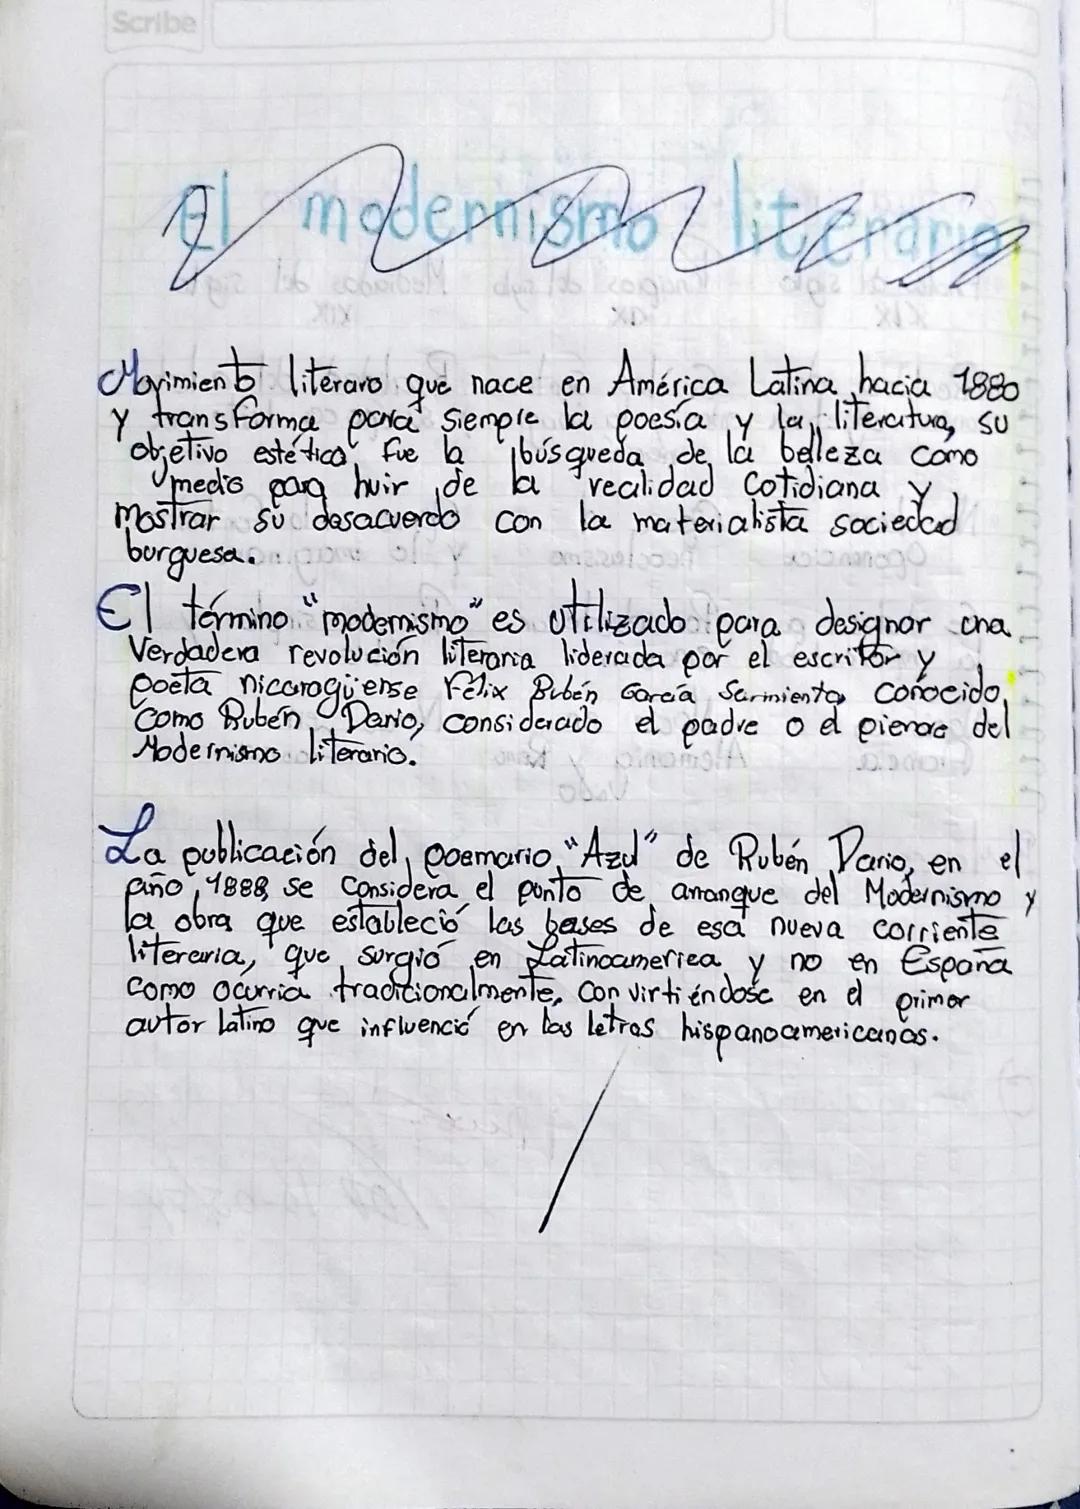 Scribe
El modernismo literario
Movimiento literaro que nace en América Latina hacia 1880
y transforma para siempre la poesía y la literatura, su
objetivo estético fue la búsqueda de la belleza como
medio para huir de la realidad cotidiana y
mostrar su desacuerdo con la materialista sociedad
burguesa.
El término "modernismo" es utilizado para designar una
Verdadera revolución literaria liderada por el escritor y
poeta nicaragüense Félix Rubén García Sarmiento, conocido
como Rubén Dario, considerado el padre o el del
Modernismo literario.
La publicación del poemario "Azul" de Rubén Dario, en el
año 1888, se considera el punto de arranque del Modernismo y
la obra que estableció las bases de esa nueva corriente
literaria, que surgió en Latinoamerica y no en España
como ocurria tradicionalmente, convirtiéndose en el primer
autor latino que influenció en las letras hispanoamericanas.